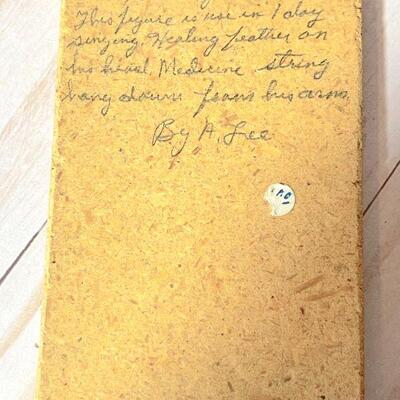 This figure is use in 1 day
singing. Healing feather on
his head. Medicine string
hang down from his arms.
By A. Lee